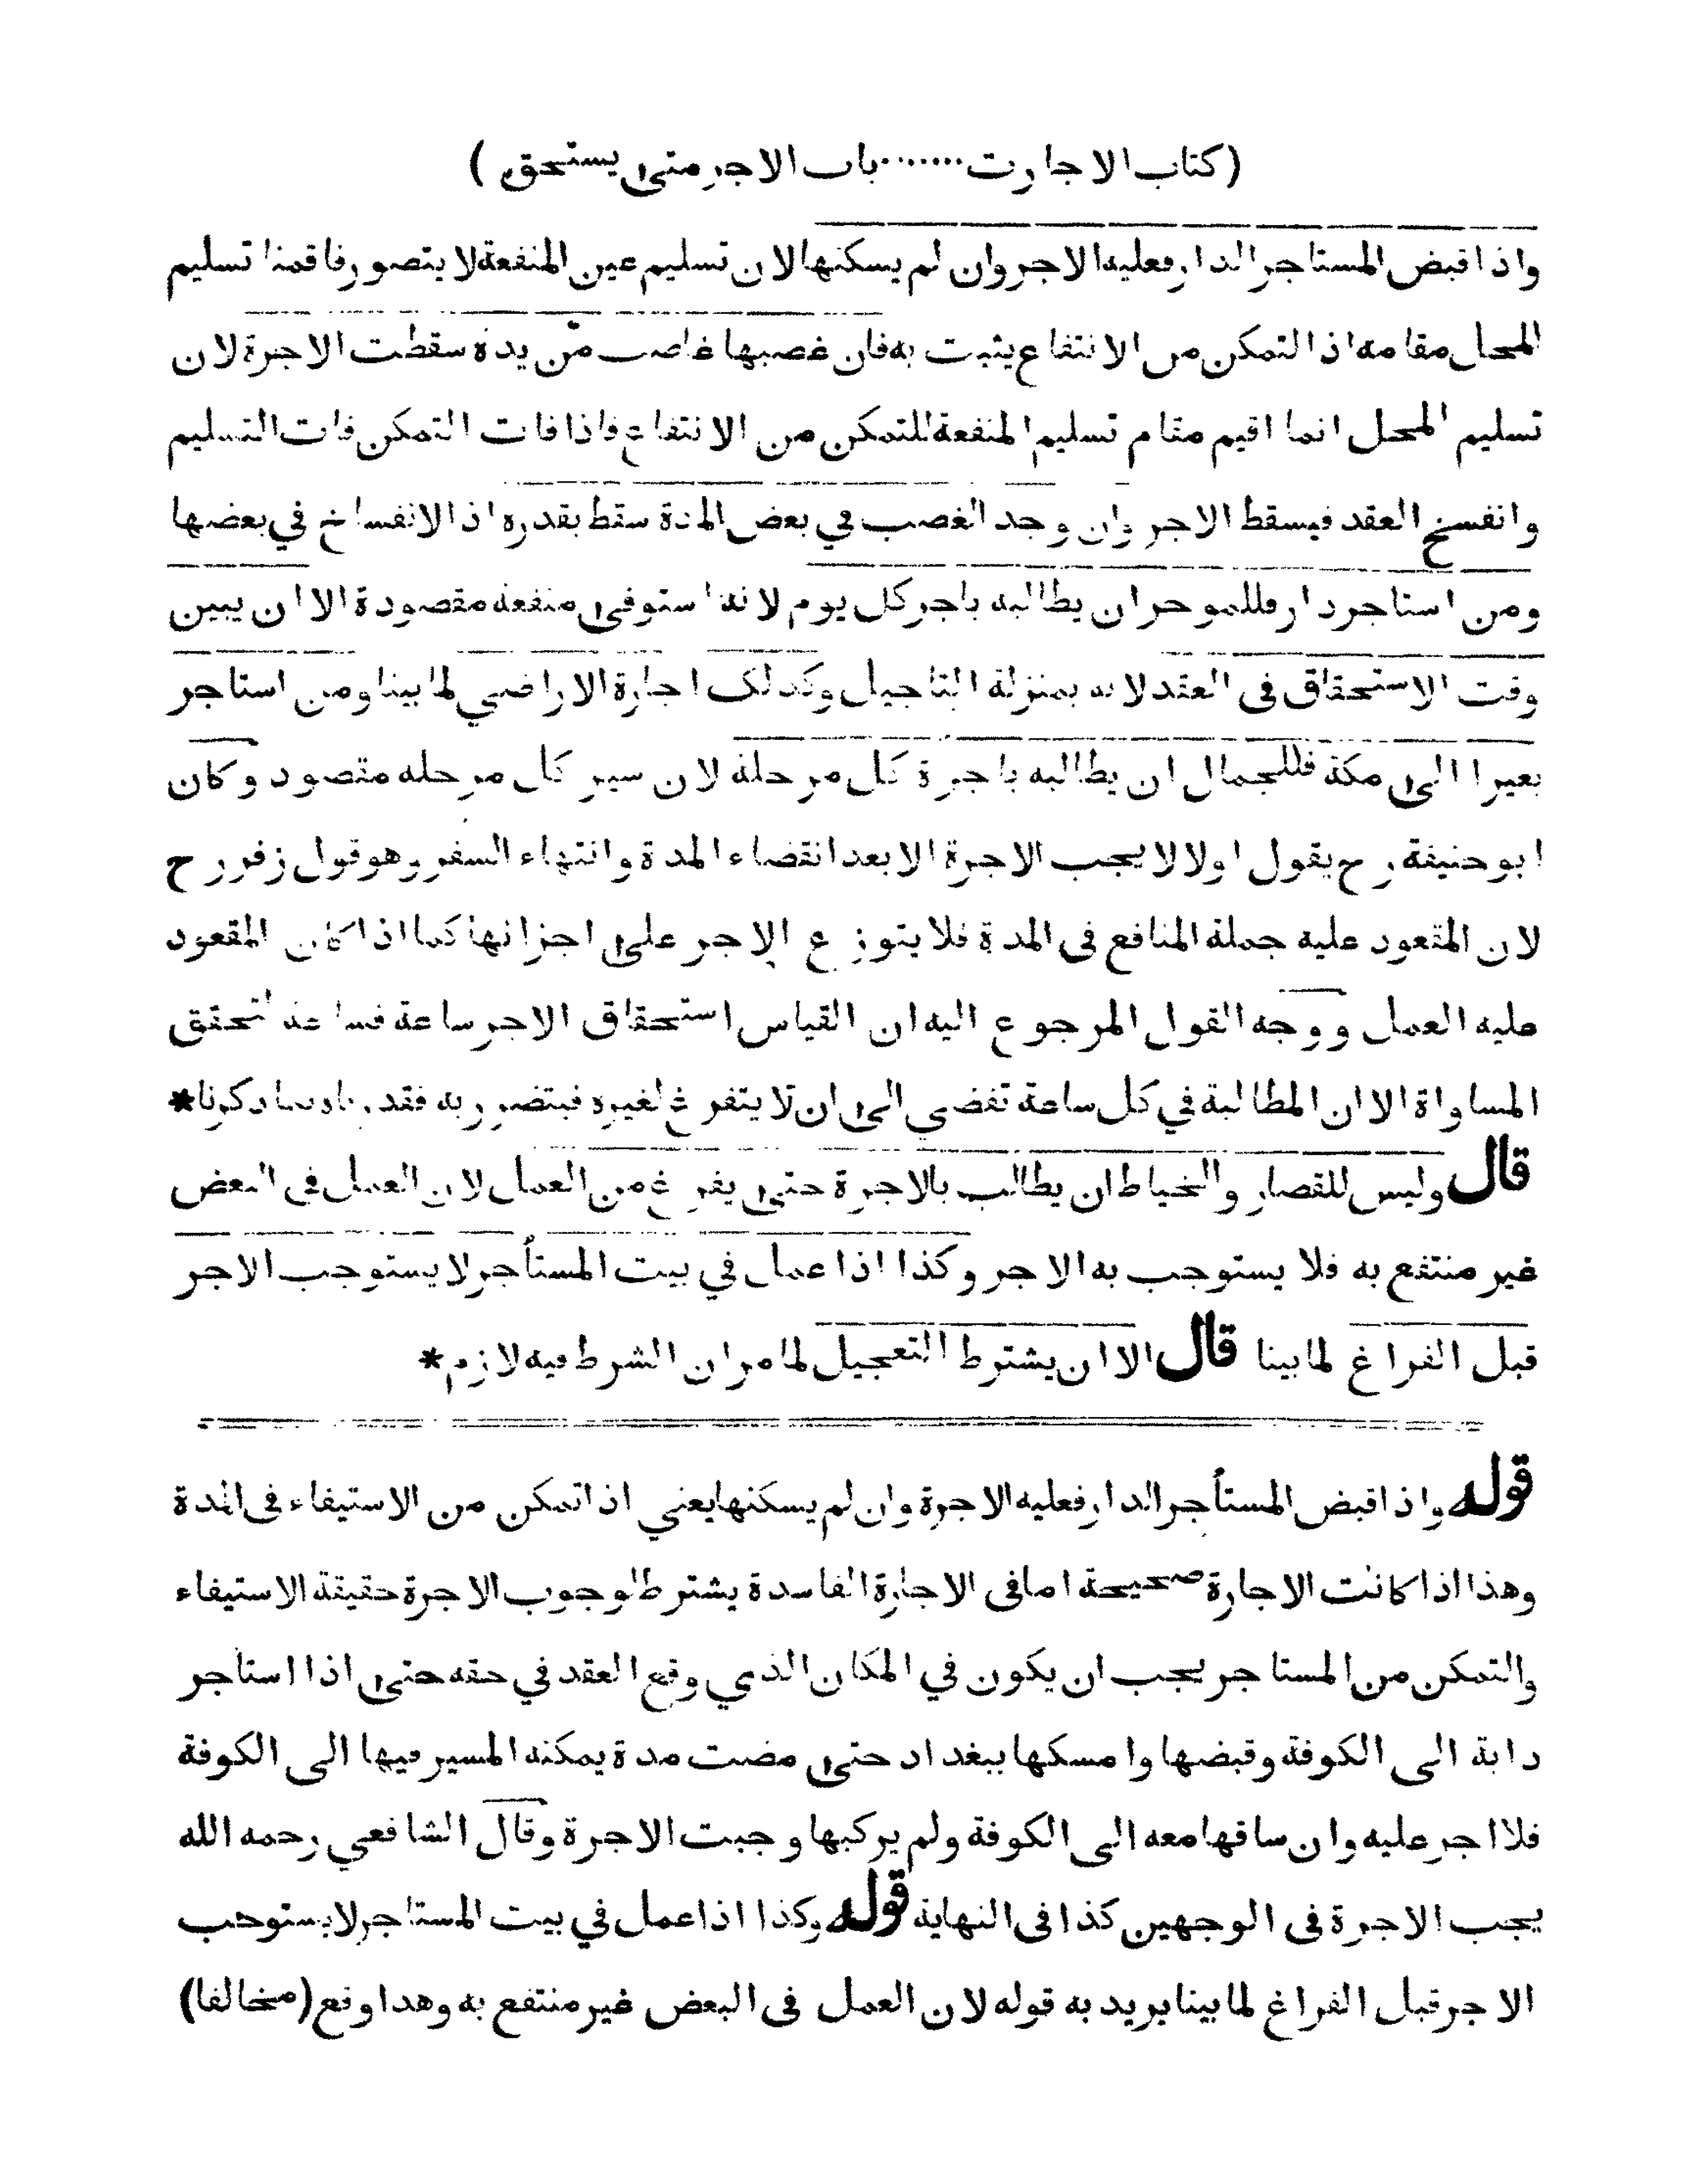 (كتاب الاجارت········باب الاجر متى يستحق)
واذا قبض المستاجر الدار فعليه الاجر وان لم يسكنها لان تسليم عين المنفعة لا يتصور فاقمنا تسليم
المحل مقامه اذ التمكن من الانتفاع يثبت به فان غصبها غاصب من يده سقطت الاجرة لان
تسليم المحل انما اقيم مقام تسليم المنفعة للتمكن من الانتفاع فاذا فات التمكن فات التسليم
وانفسخ العقد فيسقط الاجر وان وجد الغصب في بعض المدة سقط بقدره اذ الانفساخ في بعضها
ومن استاجر دار فللموجر ان يطالبه باجر كل يوم لانه استوفى منفعة مقصودة الا ان يبين
وقت الاستحقاق فى العقد لانه بمنزلة التاجيل وكذلك اجارة الاراضي لما بينا ومن استاجر
بعيرا الى مكة فللجمال ان يطالبه باجرة كل مرحلة لان سير كل مرحله مقصود وكان
ابو حنيفة رح يقول اولا لا يجب الاجرة الا بعد انقضاء المدة وانتهاء السفر وهو قول زفر رح
لان المقعود عليه جملة المنافع فى المدة فلا يتوزع الاجر على اجزائها كما اذا كان المقعود
عليه العمل ووجه القول المرجوع اليه ان القياس استحقاق الاجر ساعة فساعة لتحقق
المساواة الا ان المطالبة في كل ساعة تفضي الى ان لا يتفرغ لغيره فيتضرر به فقدرناه بما ذكرنا*
قال وليس للقصار والخياط ان يطالب بالاجرة حتى يفرغ من العمل لان العمل فى البعض
غير منتفع به فلا يستوجب به الاجر وكذا اذا عمل في بيت المستأجر لا يستوجب الاجر
قبل الفراغ لما بينا قال الا ان يشترط التعجيل لما مر ان الشرط فيه لازم*
قوله واذا قبض المستأجر الدار فعليه الاجرة وان لم يسكنها يعني اذا تمكن من الاستيفاء فى المدة
وهذا اذا كانت الاجارة صحيحة اما فى الاجارة الفاسدة يشترط لوجوب الاجرة حقيقة الاستيفاء
والتمكن من المستاجر يجب ان يكون في المكان الذي وقع العقد في حقه حتى اذا استاجر
دابة الى الكوفة وقبضها وامسكها ببغداد حتى مضت مدة يمكنه المسير فيها الى الكوفة
فلا اجر عليه وان ساقها معه الى الكوفة ولم يركبها وجبت الاجرة وقال الشافعي رحمه الله
يجب الاجرة فى الوجهين كذا فى النهاية قوله وكذا اذا عمل في بيت المستاجر لا يستوجب
الاجر قبل الفراغ لما بينا يريد به قوله لان العمل فى البعض غير منتفع به وهذا وقع (مخالفا)